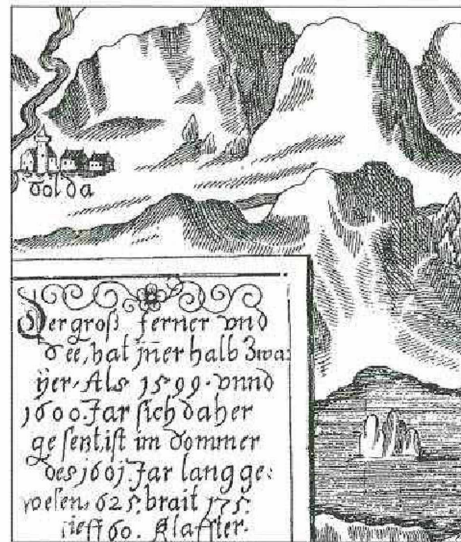 Solda
Der groß ferner vnd
See, hat iñer halb Zwa:
ÿer. Als 1599. vnnd
1600. Jar sich daher
gesent, ist im Sommer
des 1601. Jar lang ge:
wesen, 625. brait 175.
tieff 60. Klaffter.